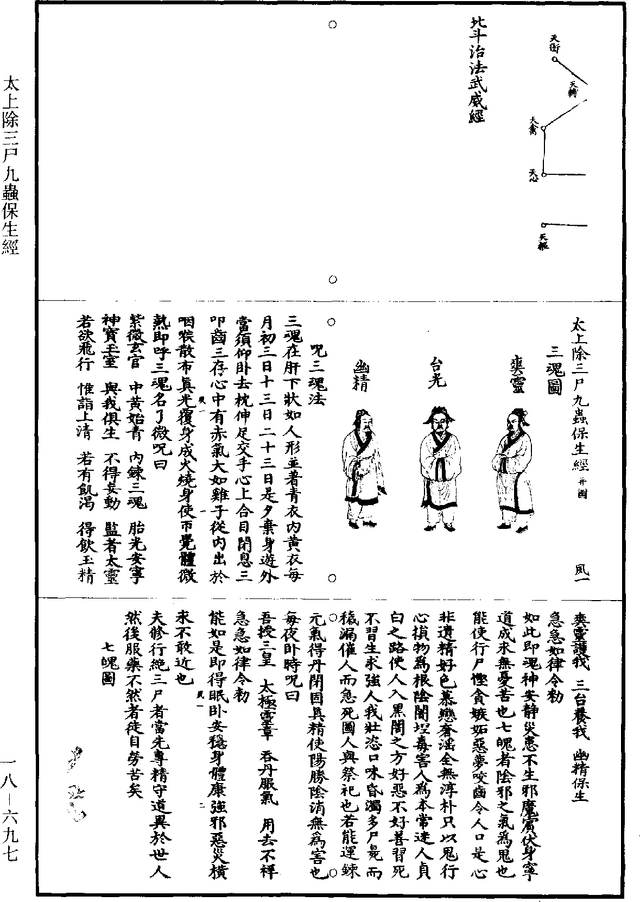 太上除三尸九蟲保生經
一八—六九七
天衝
天輔
天禽
天心
北斗治法武威經
太上除三尸九蟲保生經并圖 風一
三魂圖
爽靈
台光
幽精
呪三魂法
三魂在肝下狀如人形並著青衣內黃衣每
月初三日十三日二十三日是夕棄身遊外
當須仰卧去枕伸足交手心上合目閉息三
叩齒三存心中有赤氣大如雞子從內出於
咽喉散布真光覆身成火燒身使帀覺體微
熱即呼三魂名了微呪曰
紫微玄宫 中黃始青 內鍊三魂 胎光安寧
神寶玉室 與我俱生 不得妄動 監者太靈
若欲飛行 惟詣上清 若有飢渴 得飲玉精
爽靈護我 三台養我 幽精保生
急急如律令勑
如此即魂神安静災患不生邪魔賓伏身寧
道成永無憂苦也七魄者陰邪之氣為鬼也
能使行尸慳貪嫉妬惡夢咬齒令人口是心
非遺精好色慕戀奢淫全無淳朴只以鬼行
心損物為根陰闇埋毒害人為本常迷人貞
白之路使人入黑闇之方好惡不好善習死
不習生求強人我壯恣口味昏濁多尸臰而
穢漏催人而急死國人與祭祀也若能運鍊
元氣得丹閉固真精使陽勝陰消無為害也
每夜卧時呪曰
吾授三皇 太極靈章 吞丹服氣 用去不祥
急急如律令勑
能如是即得眠卧安穩身體康強邪惡災橫
永不敢近也
夫修行絕三尸者當先專精守道異於世人
然後服藥不然者徒自勞苦矣
七魄圖